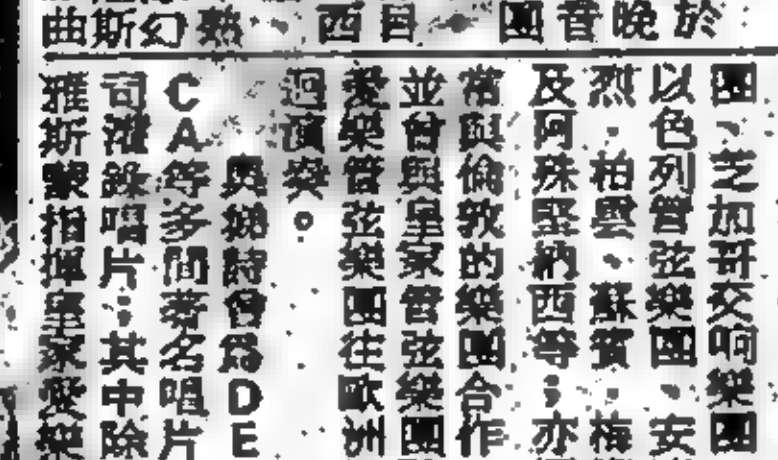 於
晚
音
團
目
西
、
熱
幻
斯
曲
團、芝加哥交响樂團
以色列管弦樂團、安
烈·柏雲、蘇賓·梅
及阿殊堅納西等；亦
常與倫敦的樂團合作
並曾與皇家管弦樂團
愛樂管弦樂團往歐洲
演奏。
與娣詩曾爲DE
CA等多間著名唱片
司灌錄唱片；其中除
雅斯蒙指揮皇家愛樂